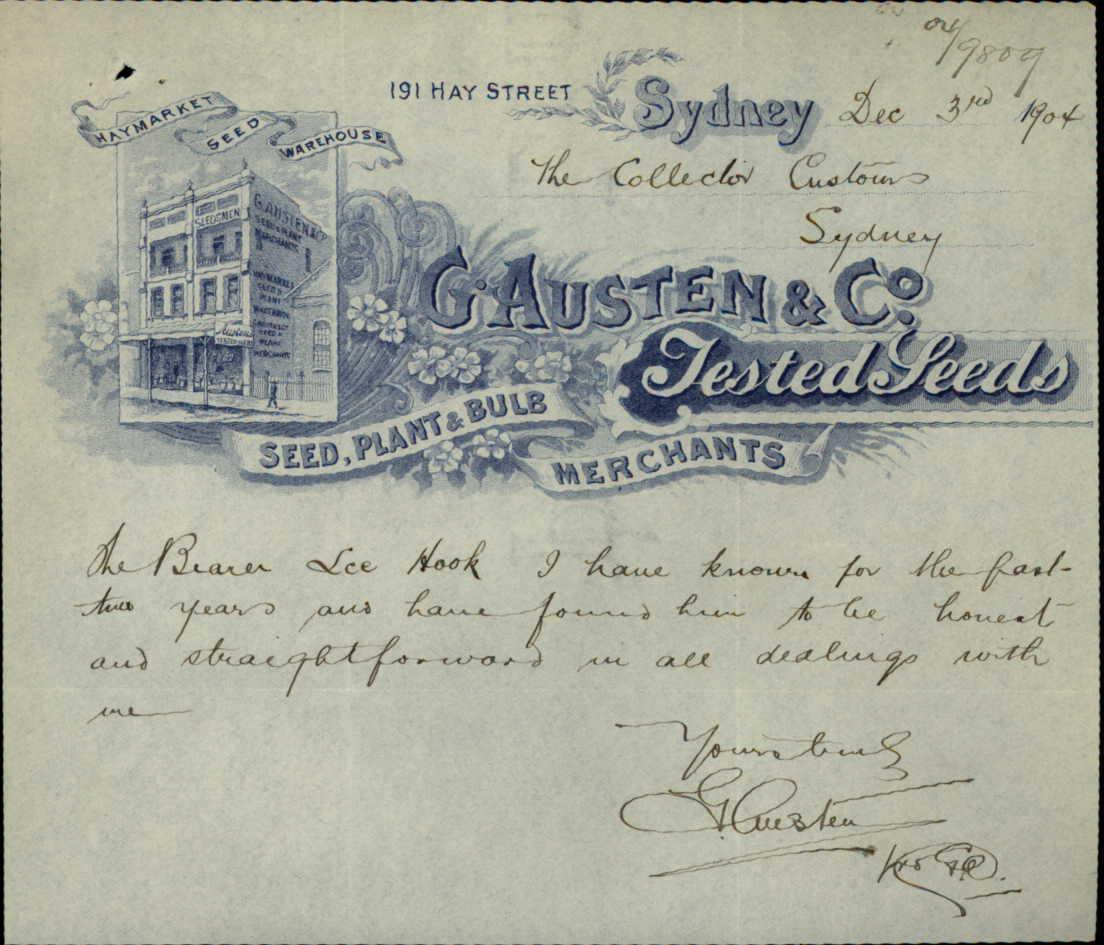 04/9809
191 HAY STREET Sydney Dec 3rd 1904
HAYMARKET SEED WAREHOUSE
The Collector Customs
Sydney
SEEDSMEN
G. AUSTEN & Co
SEED & PLANT
MERCHANTS
HAYMARKET
SEED &
PLANT
WAREHOUSE
SEED &
PLANT
MERCHANTS
Austen
G. AUSTEN & Co.
Tested Seeds
SEED, PLANT & BULB
MERCHANTS
The Bearer Lee Hook I have known for the past
two years and have found him to be honest
and straightforward in all dealings with
me
Yours truly
G Austen